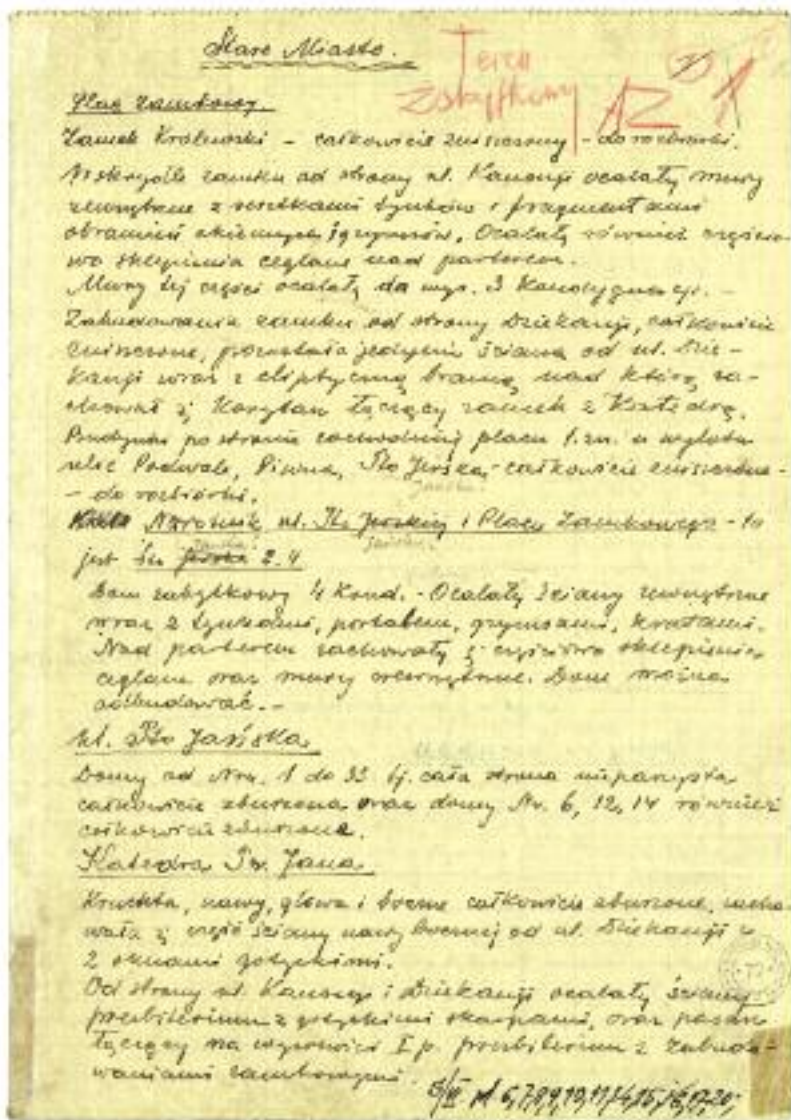 Stare Miasto.
Teren
Zabytkowy
AZ
Plac Zamkowy.
Zamek Królewski – całkowicie zniszczony – do rozbiórki.
W skrzydle zamku od strony ul. Kanonji ocalały mury
zewnętrzne z resztkami tynków i fragmentami
obramień okiennych i gzymsów. Ocalały również częścio-
wo sklepienia ceglane nad parterem.
Mury tej części ocalały do wys. 3 Kondygnacji. –
Zabudowania zamku od strony Dziekanji, całkowicie
zniszczone, pozostała jedynie ściana od ul. Dzie-
kanji wraz z eliptyczną bramą, nad którą za-
chował ś Korytarz łączący zamek z Katedrą.
Budynki po stronie zachodniej placu t.zn. u wylotu
ulic Podwale, Piwna, Śto Jerska, całkowicie zniszczone –
– do rozbiórki.
Narożnik ul. Śto Jerskiej i Placu Zamkowego – to
jest Św 2.4
Dom zabytkowy 4 Kond. – Ocalały ściany zewnętrzne
wraz z tynkami, portalem, gzymsami, kratami.
Nad parterem zachowały ś częściowo sklepienia
ceglane oraz mury wewnętrzne. Dom można
odbudować. –
ul. Śto Jańska
Domy od Nru. 1 do 33 tj. cała strona nieparzysta
całkowicie zburzona oraz domy Nr. 6, 12, 14 również
całkowicie zburzone.
Katedra Św. Jana
Kruchta, nawy, główna i boczne całkowicie zburzone, zacho-
wała ś część ściany nawy bocznej od ul. Dziekanji z
2 oknami gotyckimi.
Od strony ul. Kanonji i Dziekanji ocalały ściany
prezbiterium z gotyckimi skarpami, oraz pasaż
łączący na wysokości I p. prezbiterium z zabudo-
waniami zamkowymi.